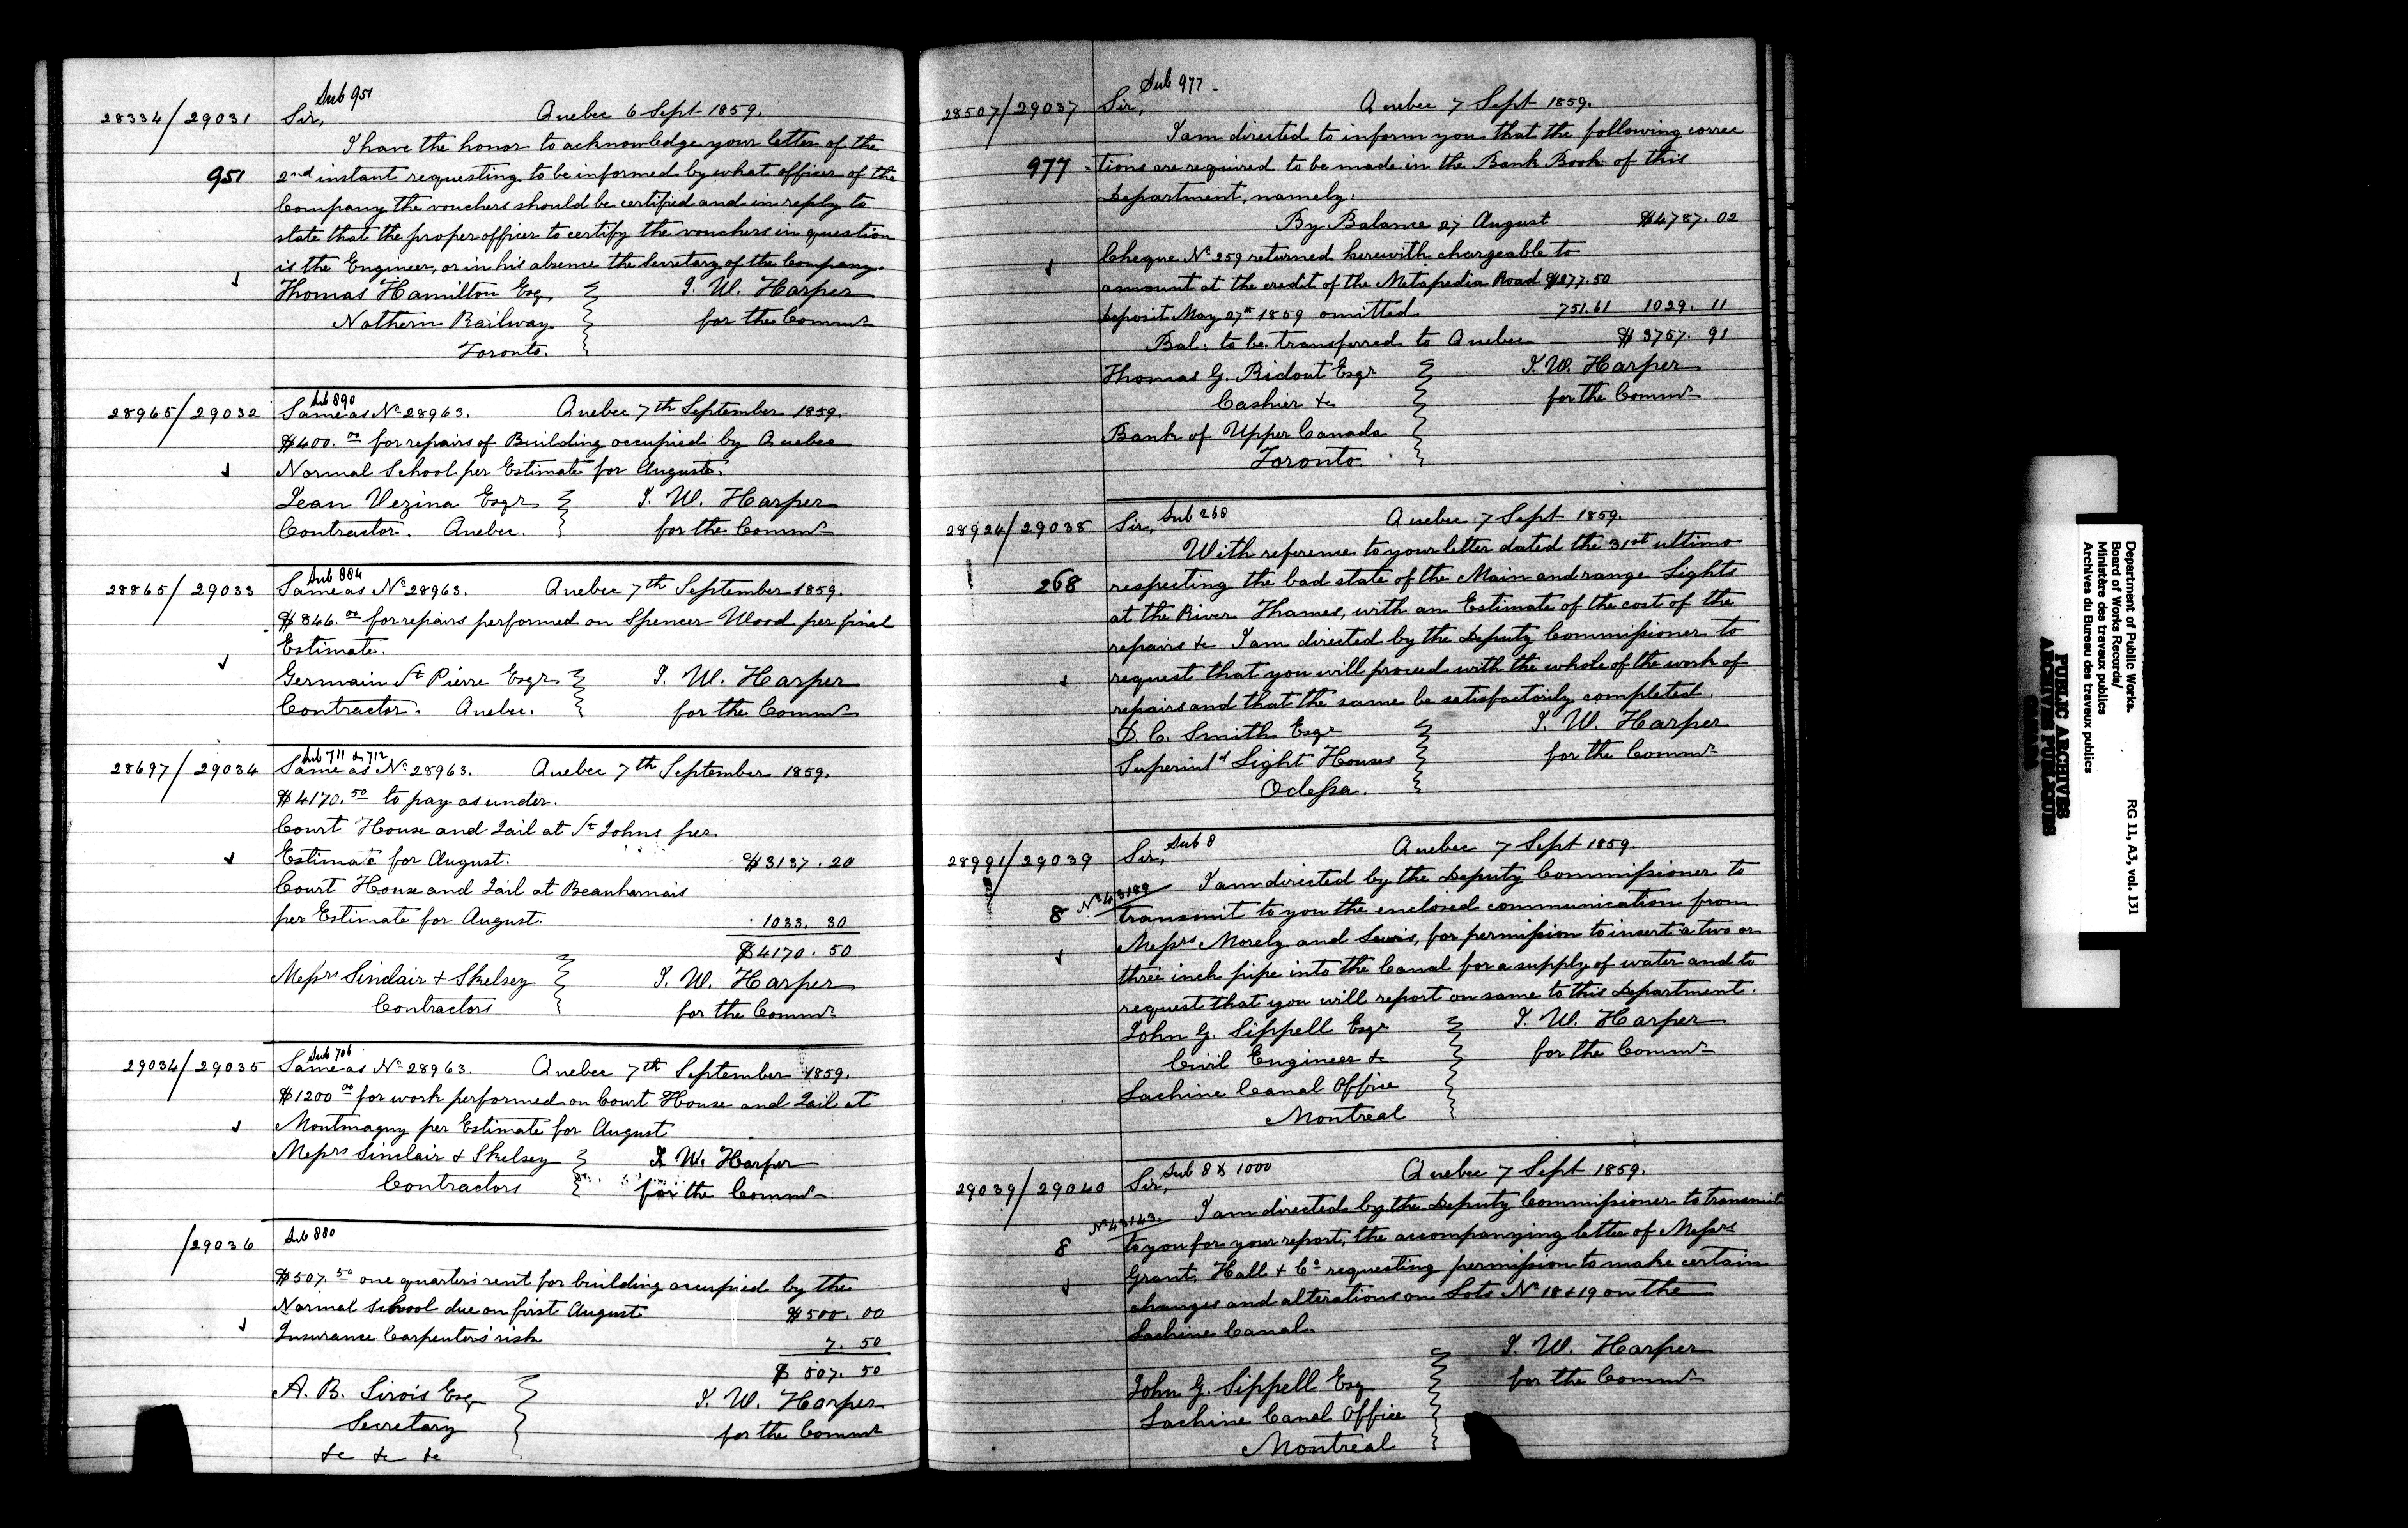 Sub 951
28334/29031 Sir, Quebec 6 Sept 1859.
I have the honor to acknowledge your letter of the
951 2nd instant requesting to be informed by what officer of the
Company the vouchers should be certified and in reply to
state that the proper officer to certify the vouchers in question
is the Engineer, or in his absence the Secretary of the Company.
Thomas Hamilton Esq T. W. Harper
Nothern Railway for the Commrs
Toronto.
Sub 890
28965/29032 Same as No 28963. Quebec 7th September 1859.
$400.00 for repairs of Building occupied by Quebec
Normal School per Estimate for August.
Jean Vezina Esqr T. W. Harper
Contractor. Quebec. for the Commr
Sub 884
28865/29033 Same as No 28963. Quebec 7th September 1859.
$846.00 for repairs performed on Spencer Wood per final
Estimate.
Germain St Pierre Esqr T. W. Harper
Contractor. Quebec. for the Commr
Sub 711 & 712
28697/29034 Same as No 28963. Quebec 7th September 1859.
$4170.50 to pay as under.
Court House and Jail at St Johns per
Estimate for August. $3137.20
Court House and Jail at Beauharnais
per Estimate for August. 1033.30
$4170.50
Messrs Sinclair & Skelsey T. W. Harper
Contractors for the Commr
Sub 706
29034/29035 Same as No 28963. Quebec 7th September 1859.
$1200 00 for work performed on Court House and Jail at
Montmagny per Estimate for August
Messrs Sinclair & Skelsey T. W. Harper
Contractors for the Commr
/29036 Sub 880
$507.50 one quarter's rent for building occupied by the
Normal School due on first August $500.00
Insurance Carpenter's risk 7.50
$507.50
A. B. Sirois Esq T. W. Harper
Secretary for the Commr
&c &c &c
Sub 977
28507/29037 Sir, Quebec 7 Sept 1859.
I am directed to inform you that the following correc
977 -tions are required to be made in the Bank Book of this
Department, namely:
By Balance 27 August $4787.02
Cheque No 259 returned herewith chargeable to
amount at the credit of the Metapedia Road $277.50
Deposit May 27th 1859 omitted 751.61 1029.11
Bal: to be transferred to Quebec $3757.91
Thomas G. Ridout Esqr T. W. Harper
Cashier &c for the Commr
Bank of Upper Canada
Toronto.
28924/29038 Sir, Sub 268 Quebec 7 Sept 1859.
With reference to your letter dated the 31st ultimo
268 respecting the bad state of the Main and range Lights
at the River Thames, with an Estimate of the cost of the
repairs &c I am directed by the Deputy Commissioner to
request that you will proceed with the whole of the work of
repairs and that the same be satisfactorily completed.
D. C. Smith Esqr T. W. Harper
Superintd Light Houses for the Commr
Odessa.
28991/29039 Sir, Sub 8 Quebec 7 Sept 1859.
No 43189 I am directed by the Deputy Commissioner to
8 transmit to you the enclosed communication from
Messrs Morely and Lewis, for permission to insert a two or
three inch pipe into the Canal for a supply of water and to
request that you will report on same to this Department.
John G. Sippell Esqr T. W. Harper
Civil Engineer &c for the Commr
Lachine Canal Office
Montreal
29039/29040 Sir, Sub 8 & 1000 Quebec 7 Sept 1859.
No 43143. I am directed by the Deputy Commissioner to transmit
8 to you for your report, the accompanying letter of Messrs
Grant, Hall & Co requesting permission to make certain
changes and alterations on Lots No 18 & 19 on the
Lachine Canal.
T. W. Harper
John G. Sippell Esq for the Commr
Lachine Canal Office
Montreal
Department of Public Works. RG 11, A3, vol. 131
Board of Works Records/
Ministère des travaux publics
Archives du Bureau des travaux publics
PUBLIC ARCHIVES
ARCHIVES PUBLIQUES
CANADA